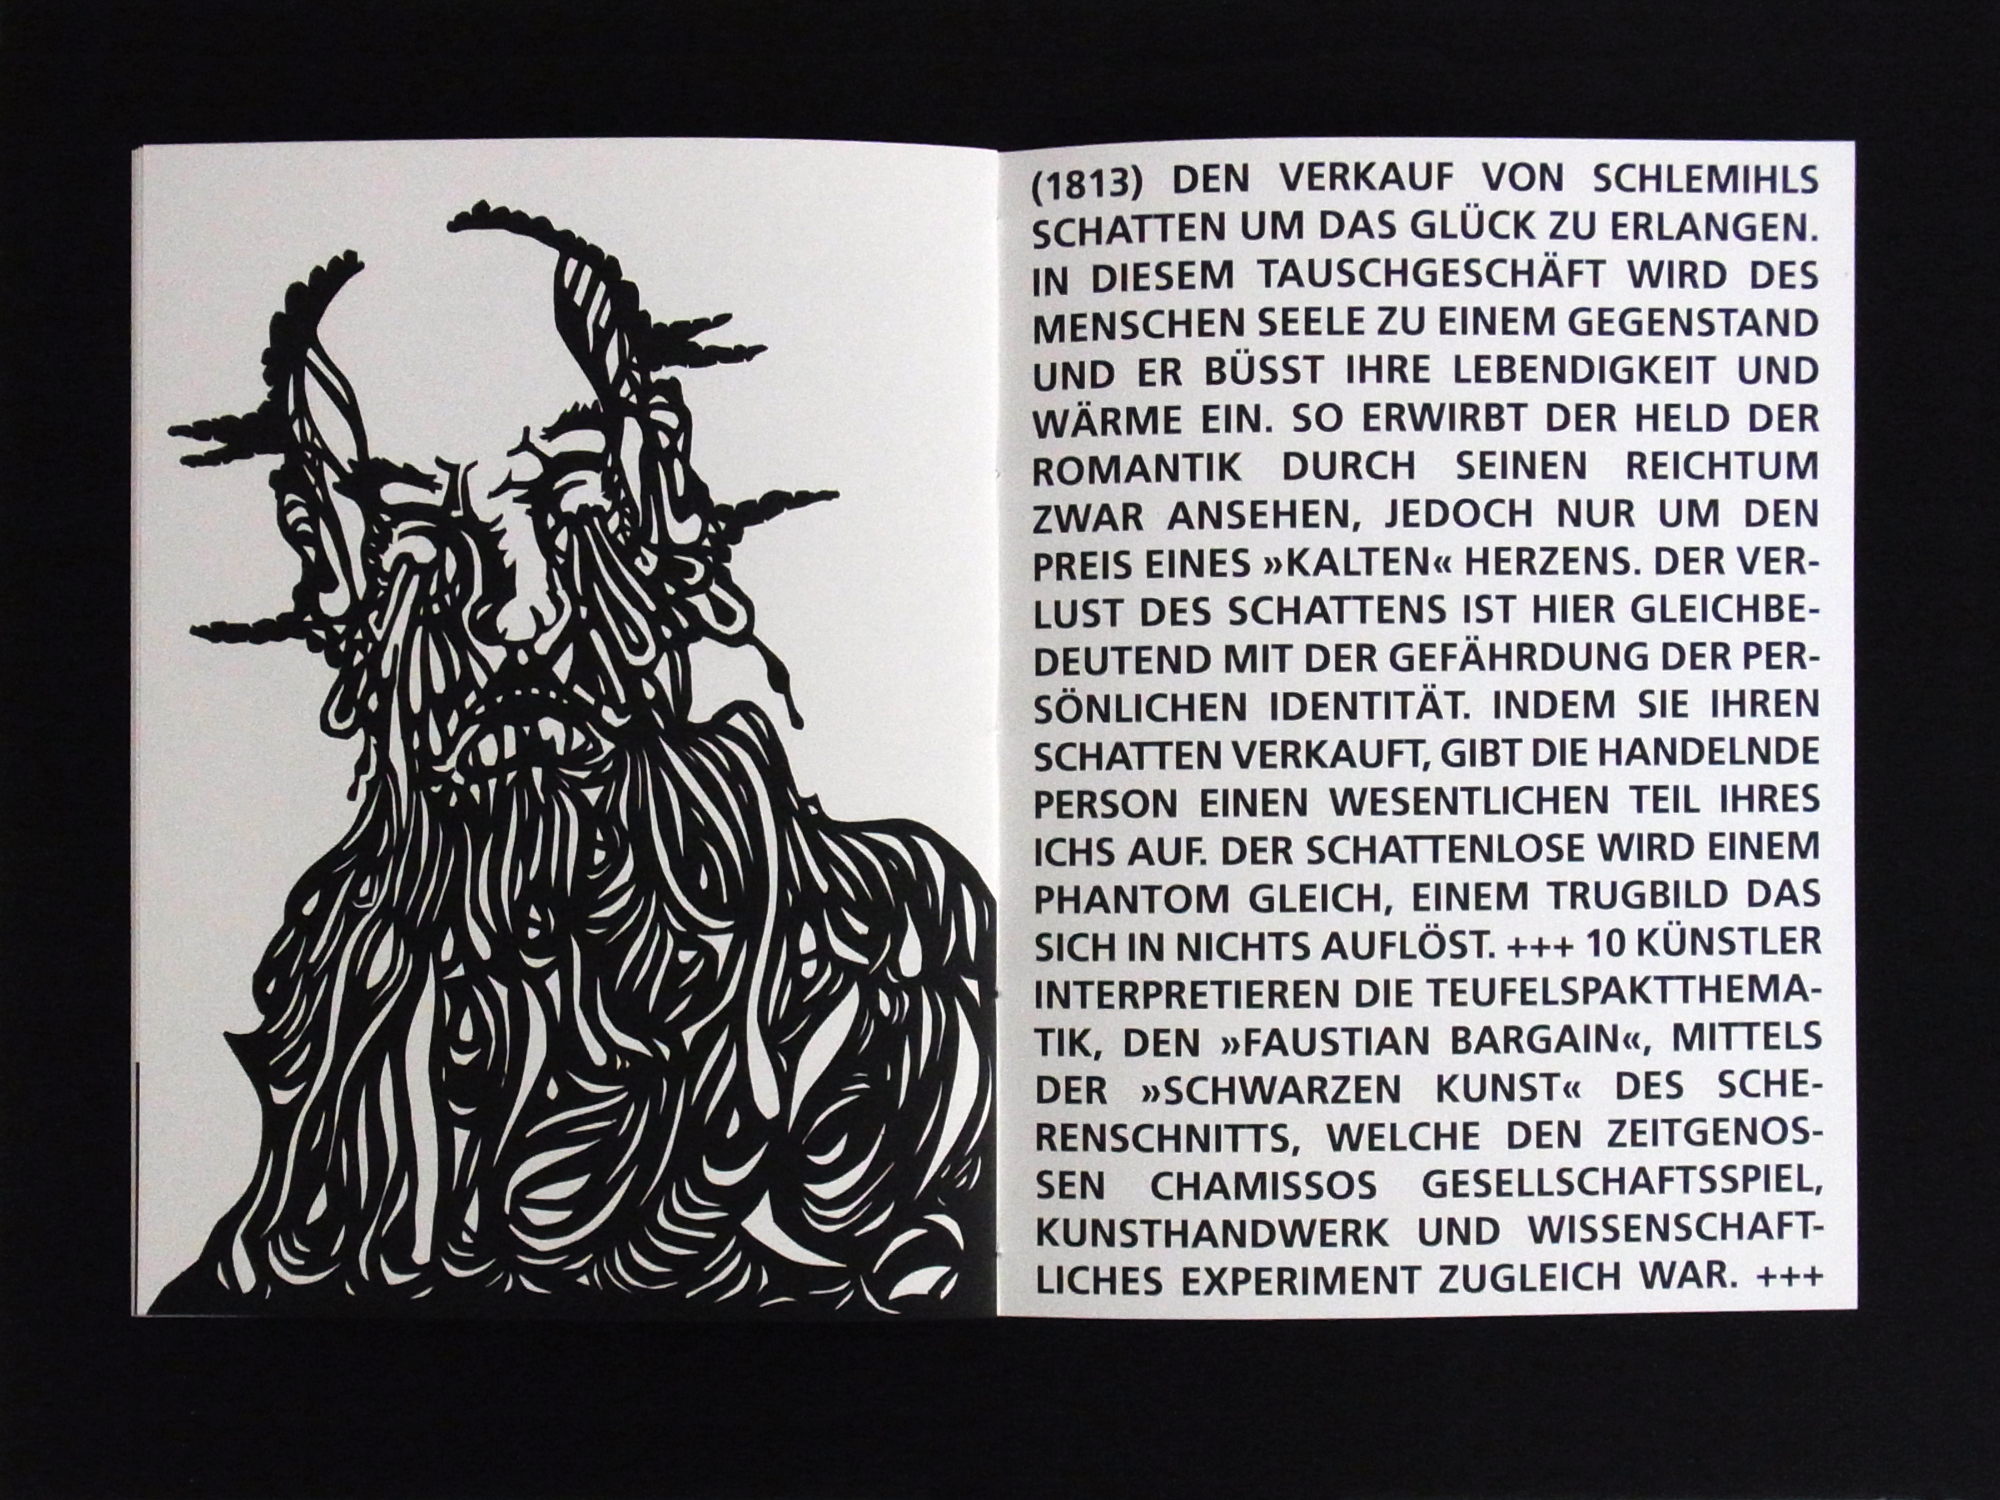 (1813) DEN VERKAUF VON SCHLEMIHLS
SCHATTEN UM DAS GLÜCK ZU ERLANGEN.
IN DIESEM TAUSCHGESCHÄFT WIRD DES
MENSCHEN SEELE ZU EINEM GEGENSTAND
UND ER BÜSST IHRE LEBENDIGKEIT UND
WÄRME EIN. SO ERWIRBT DER HELD DER
ROMANTIK DURCH SEINEN REICHTUM
ZWAR ANSEHEN, JEDOCH NUR UM DEN
PREIS EINES »KALTEN« HERZENS. DER VER-
LUST DES SCHATTENS IST HIER GLEICHBE-
DEUTEND MIT DER GEFÄHRDUNG DER PER-
SÖNLICHEN IDENTITÄT. INDEM SIE IHREN
SCHATTEN VERKAUFT, GIBT DIE HANDELNDE
PERSON EINEN WESENTLICHEN TEIL IHRES
ICHS AUF. DER SCHATTENLOSE WIRD EINEM
PHANTOM GLEICH, EINEM TRUGBILD DAS
SICH IN NICHTS AUFLÖST. +++ 10 KÜNSTLER
INTERPRETIEREN DIE TEUFELSPAKTTHEMA-
TIK, DEN »FAUSTIAN BARGAIN«, MITTELS
DER »SCHWARZEN KUNST« DES SCHE-
RENSCHNITTS, WELCHE DEN ZEITGENOS-
SEN CHAMISSOS GESELLSCHAFTSSPIEL,
KUNSTHANDWERK UND WISSENSCHAFT-
LICHES EXPERIMENT ZUGLEICH WAR. +++